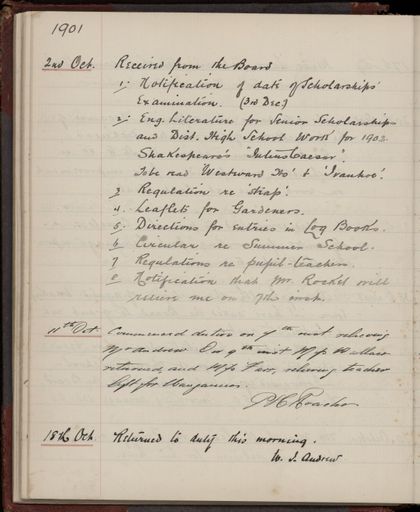 1901
2nd Oct. Received from the Board
1. Notification of date of Scholarships'
Examination. (3rd Dec.)
2. Eng. Literature for Senior Scholarships
and Dist. High School Work for 1902.
Shakespeare's 'Julius Caesar'.
To be read 'Westward Ho' & 'Ivanhoe'.
3 Regulation re 'strap'.
4. Leaflets for Gardeners.
5. Directions for entries in Log Books.
6 Circular re Summer School.
7 Regulations re pupil-teachers.
8 Notification that Mr will
relieve me on 7th inst.
11th Oct. Commenced duties on 7th inst relieving
Mr Andrew On 9th inst Miss Wallace
returned, and Miss, relieving teacher
left for Wanganui.
18th Oct. Returned to duty this morning.
W. J. Andrew